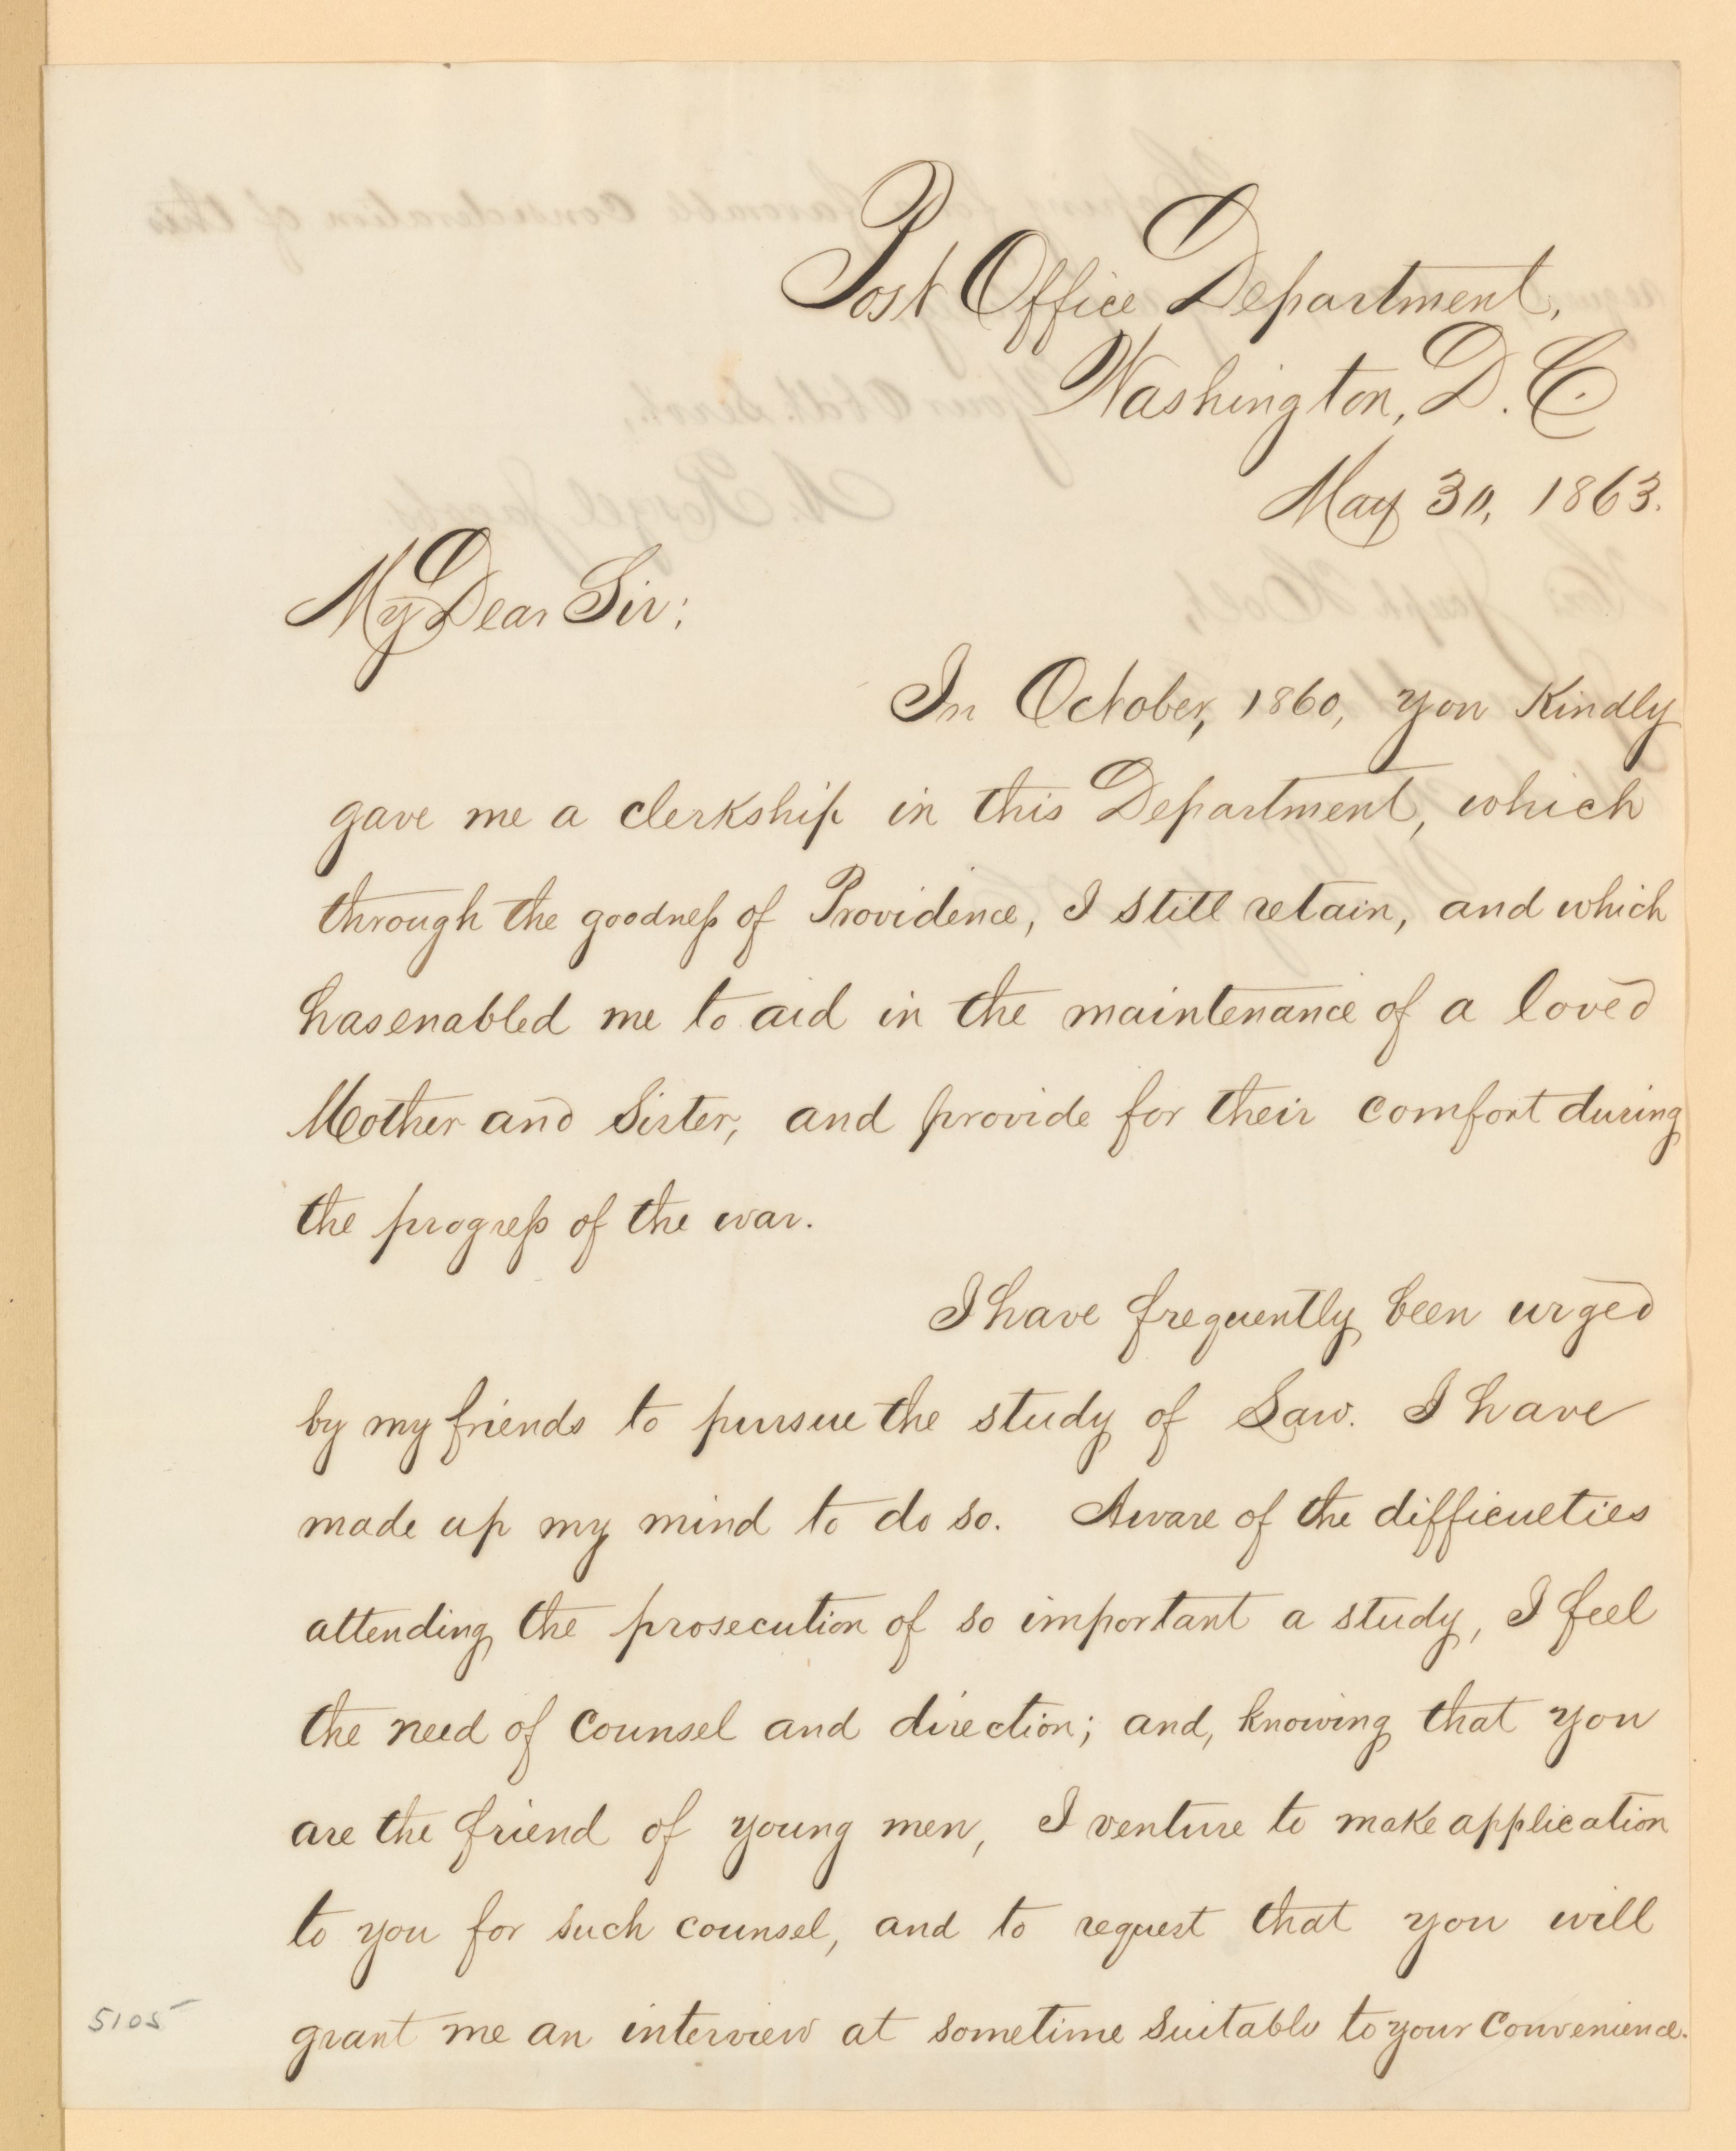 Post Office Department,
Washington, D. C.
May 30, 1863.
My Dear Sir:
In October, 1860, you Kindly
gave me a clerkship in this Department, which
through the goodness of Providence, I still retain, and which
has enabled me to aid in the maintenance of a loved
Mother and Sister, and provide for their comfort during
the progress of the war.
I have frequently been urged
by my friends to pursue the study of Law. I have
made up my mind to do so. Aware of the difficulties
attending the prosecution of so important a study, I feel
the need of counsel and direction; and, knowing that you
are the friend of young men, I venture to make application
to you for such counsel, and to request that you will
grant me an interview at sometime suitable to your convenience.
5105